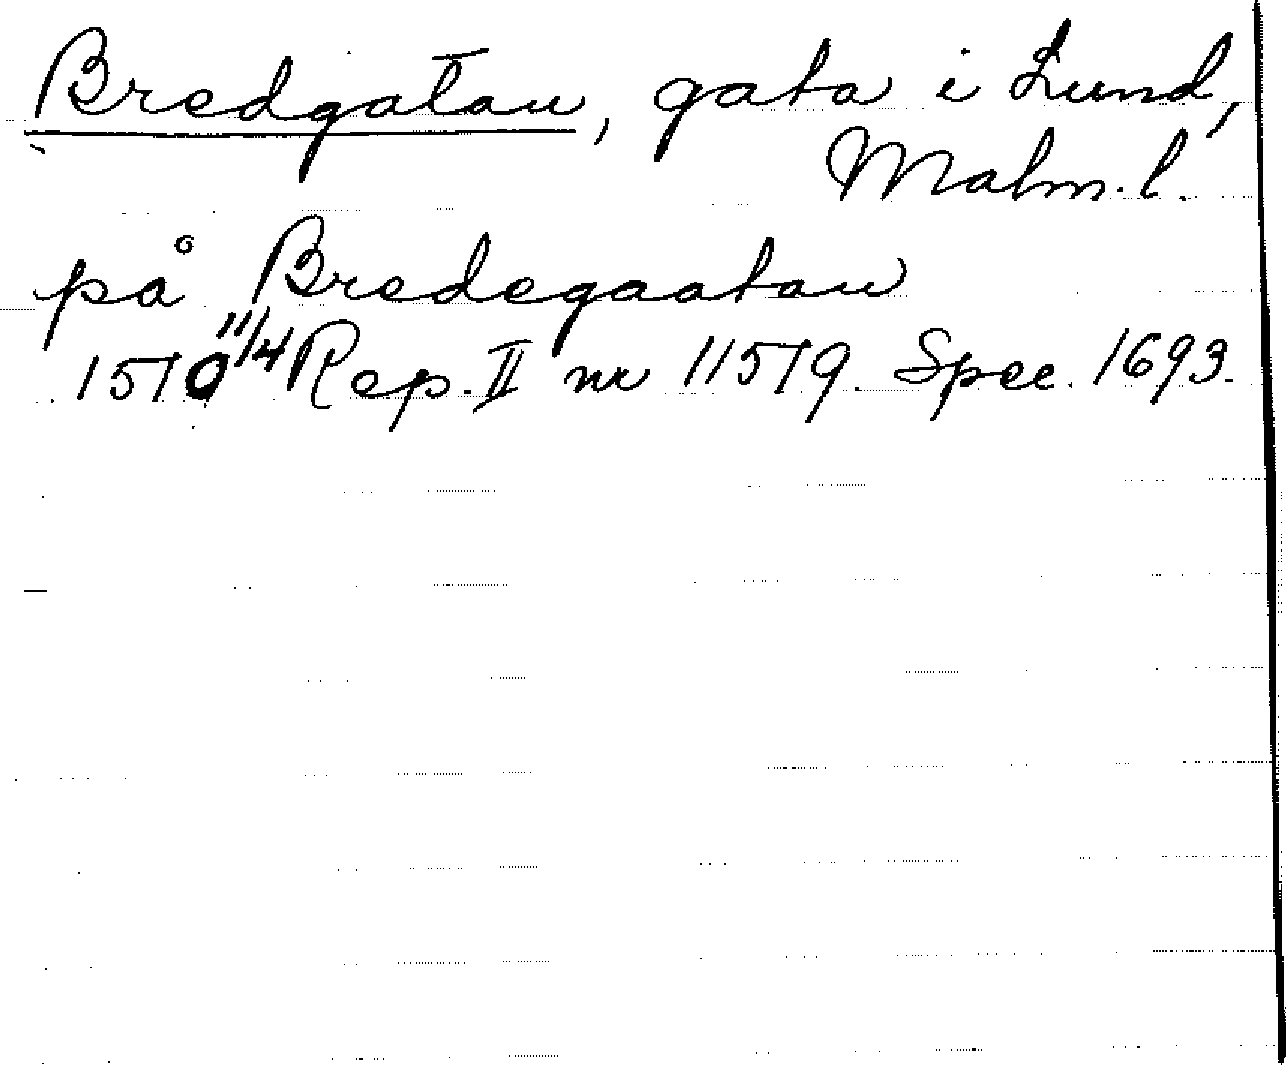 Bredgatan, gata i Lund,
Malm. l.
på Bredegaatan
1510 11/4 Rep. II nr 11519. Spec. 1693.